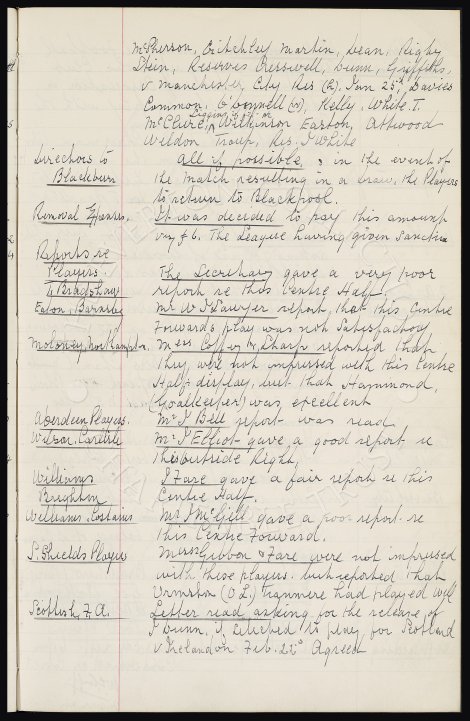 McPherson, Critchley Martin, Dean, Rigby
Stein, Reserves Cresswell, Dunn, Griffiths,
v Manchester City Res (A), Jan 25th, Davies
Common, O'Donnell (W), Kelly, White. T.
McClure, Wilkinson Easton, Attwood
Weldon Troup, Res. J White
Directors to Blackburn
All if possible, & in the event of
the match resulting in a draw, the Players
to return to Blackpool.
Removal Expenses.
It was decided to pay this amount
viz £6. The League having given sanction
Reports re Players.
The Secretary gave a very poor
report re this Centre Half
Bradshaw
Eaton, Barnsley
Mr W J Sawyer report, that this Centre
Forwards play was not satisfactory
Moloney, Northampton.
Mess Coffer & Sharp reported that
they were not impressed with this Centre
Half display, but that Hammond,
(Goalkeeper) was excellent
Aberdeen Players.
Mr J Bell report was read
Wilson. Carlisle
Mr J Elliot gave a good report re
this Outside Right,
Williams Brighton
J Fare gave a fair report re this
Centre Half.
Williams,
Mr J McGill gave a poor report re
this Centre Forward.
S. Shields Player
Mess Gibbon & Fare were not impressed
with these players. but reported that
Ormston (O L.) Tranmere had played well
Scottish, F.A.
Letter read, asking for the release of
J Dunn, if selected to play, for Scotland
v Ireland on Feb. 22nd Agreed